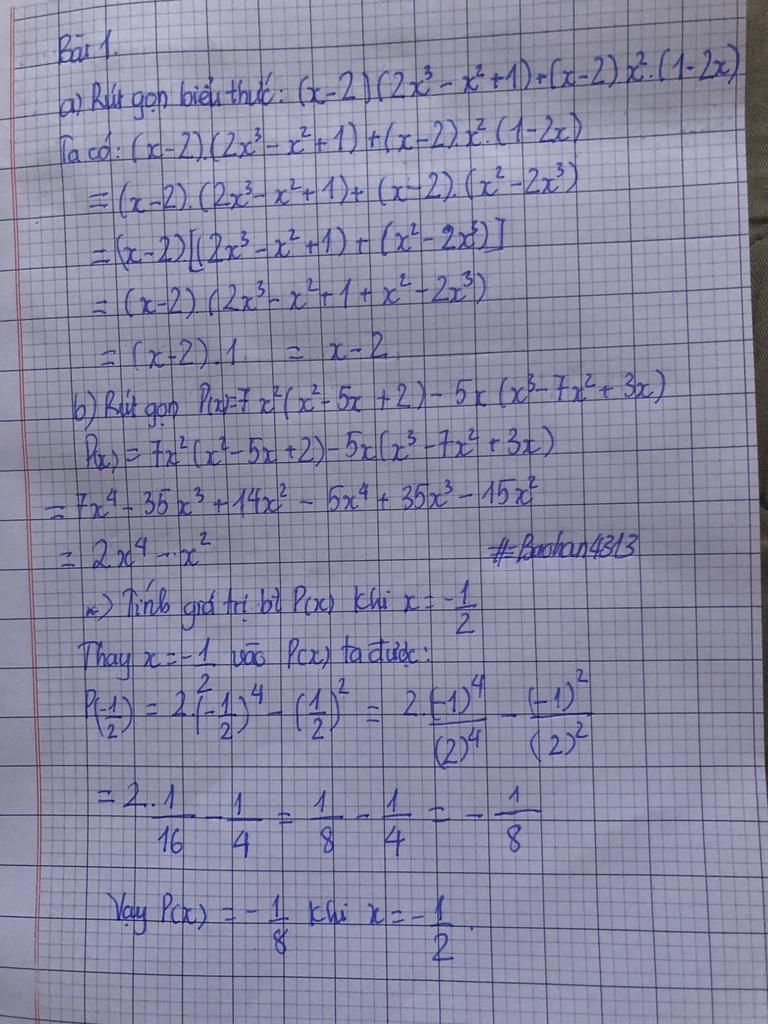 Bài 1.
a) Rút gọn biểu thức: (x-2)(2x³ - x² + 1) + (x-2) x². (1-2x)
Ta có: (x-2).(2x³ - x² + 1) + (x-2) x². (1-2x)
= (x-2). (2x³ - x² + 1) + (x-2). (x² - 2x³)
= (x-2)[(2x³ - x² + 1) + (x² - 2x³)]
= (x-2) (2x³ - x² + 1 + x² - 2x³)
= (x-2).1 = x-2
b) Rút gọn P(x)=7x²(x² - 5x + 2) - 5x (x³ - 7x² + 3x)
P(x) = 7x²(x² - 5x + 2) - 5x(x³ - 7x² + 3x)
= 7x⁴ - 35x³ + 14x² - 5x⁴ + 35x³ - 15x²
= 2x⁴ - x²
#Baohan4313
*) Tính giá trị bt P(x) khi x = -1/2
Thay x = -1/2 vào P(x) ta được:
P(-1/2) = 2.(-1/2)⁴ - (1/2)² = 2.(-1)⁴/(2)⁴ - (-1)²/(2)²
= 2.1/16 - 1/4 = 1/8 - 1/4 = - 1/8
Vậy P(x) = - 1/8 khi x = - 1/2.